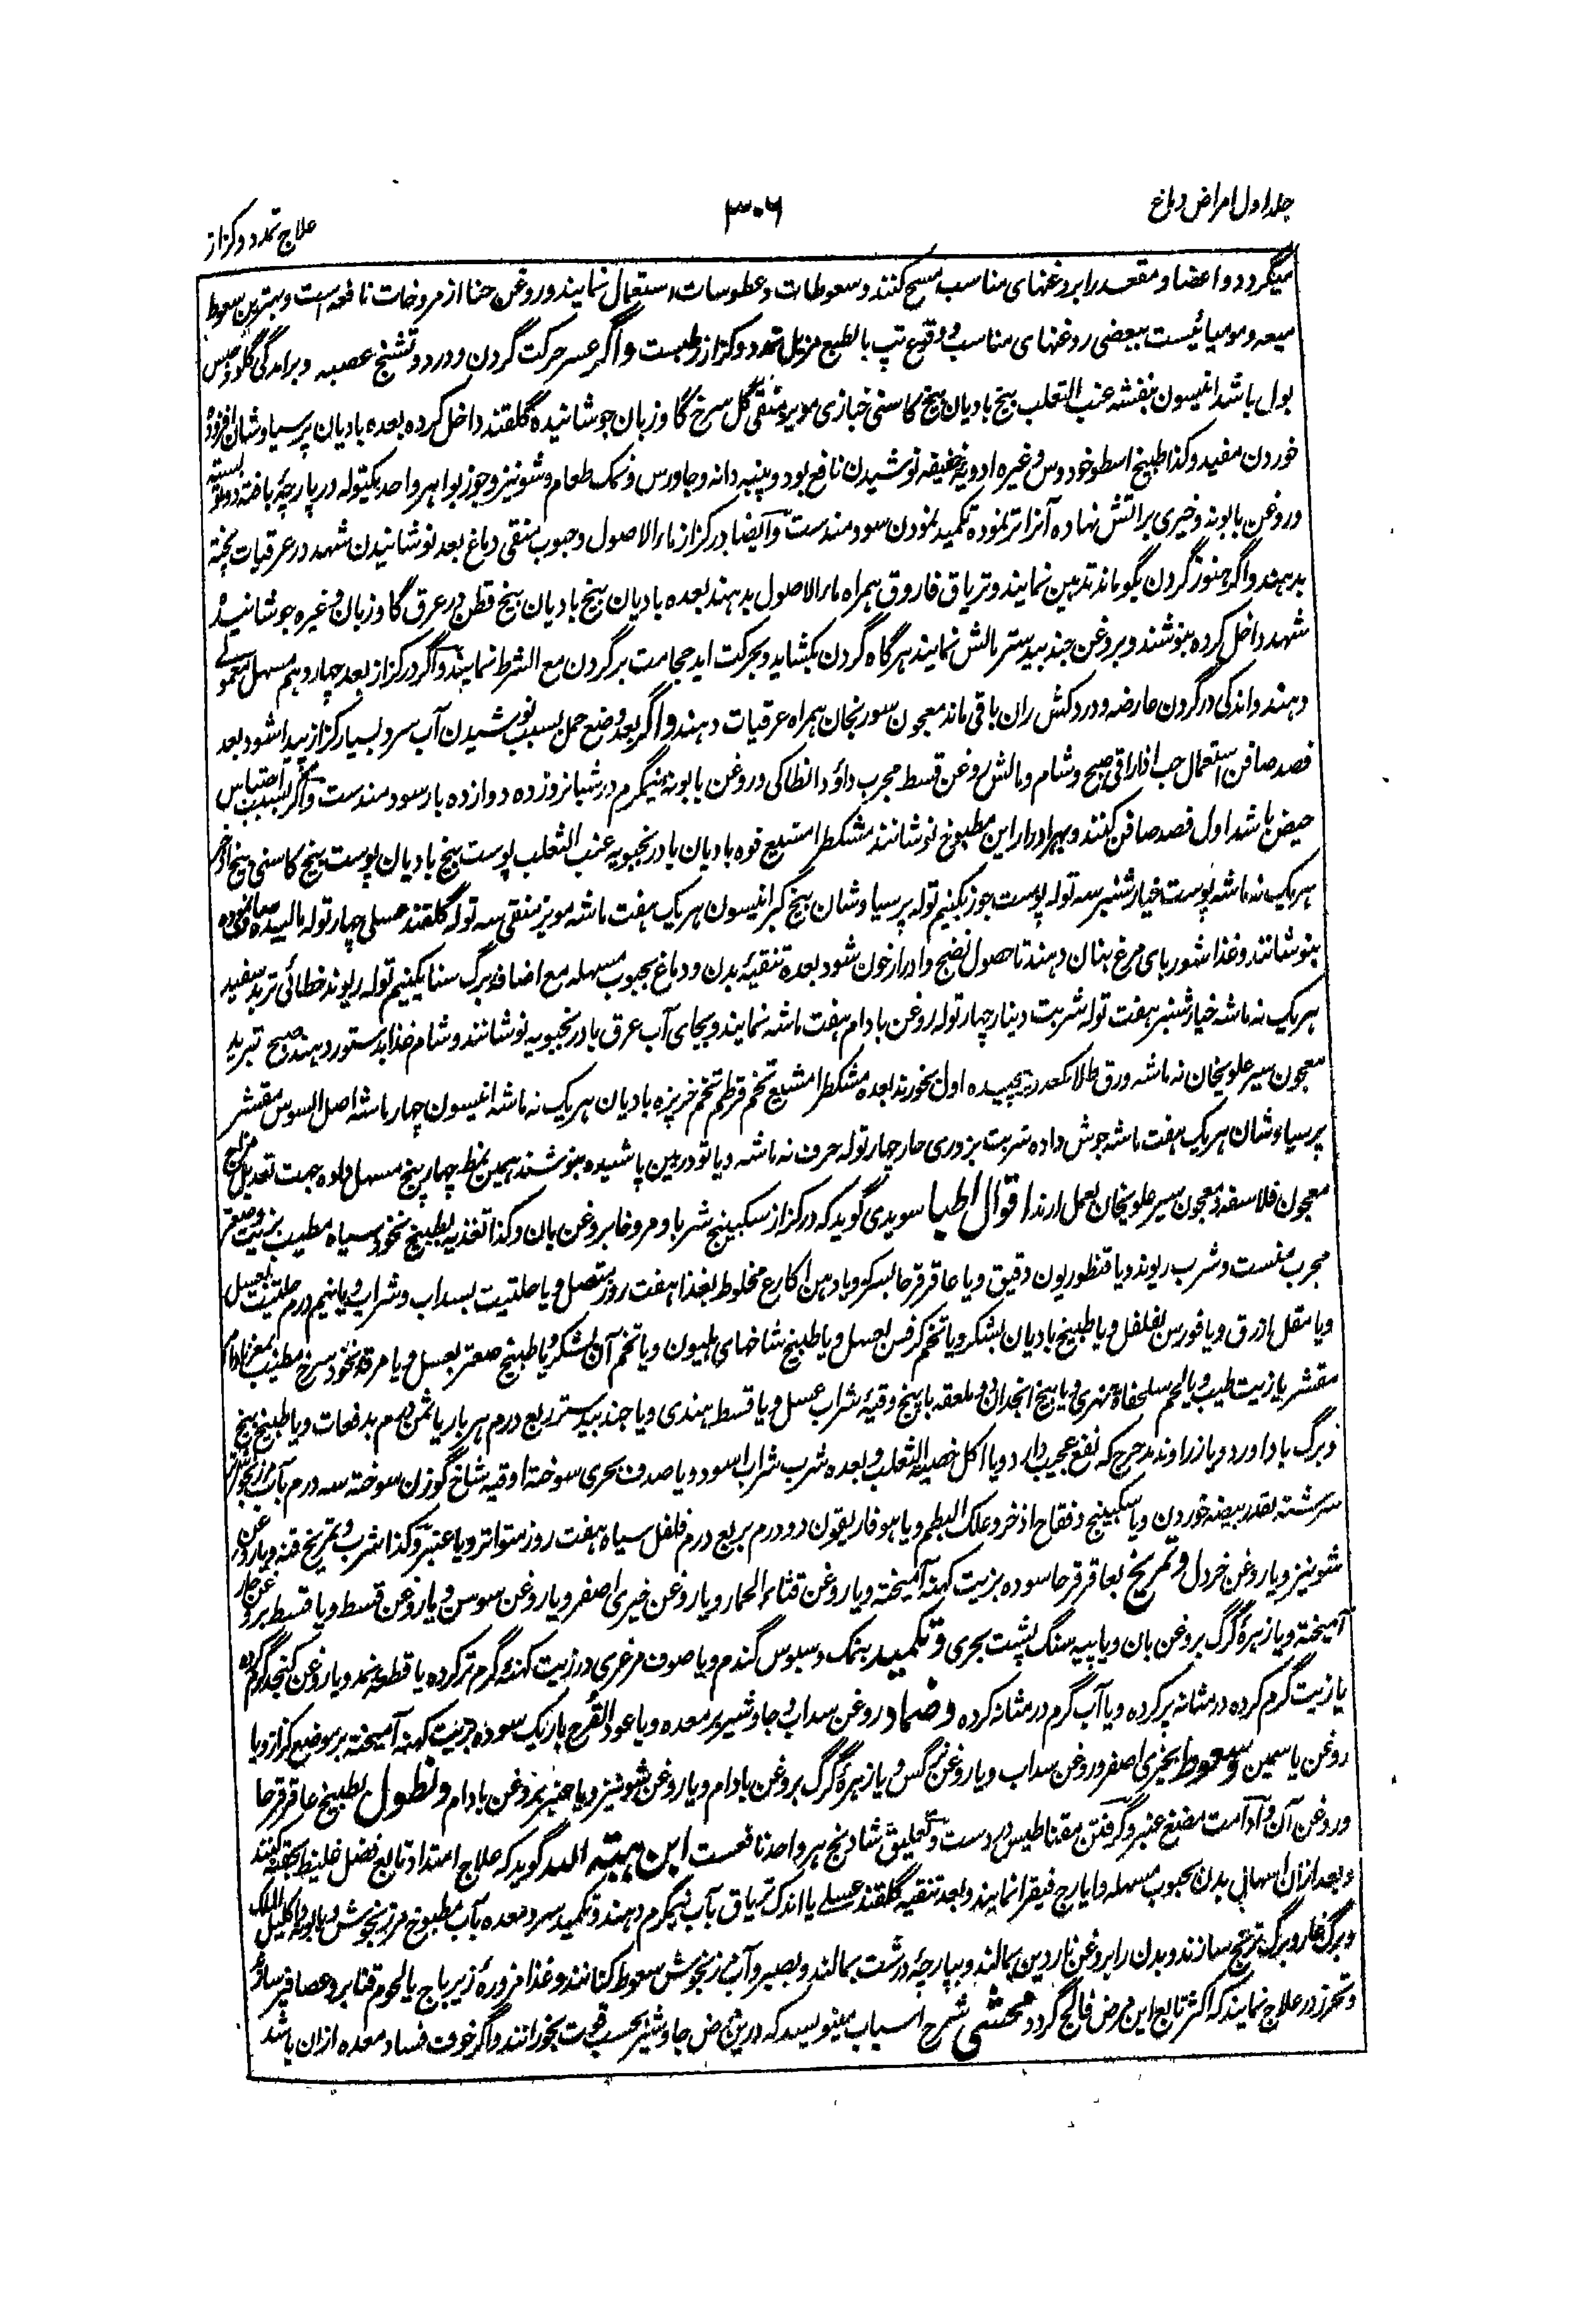 جلد اول امراض دماغ
۳۰۶
علاج تمدد و کزاز
میگردد و اعضا و مقعد را بروغنهای مناسب مسح کنند و سعوطات و عطوسات استعمال نمایند و روغن حنا از مروخات نافعه است و بهترین سعوط
میعه و مومیائیست ببعضی روغنهای مناسب و وقوع تپ بالطبع مزیل تمدد و کزاز رطبست و اگر عسر حرکت گردن و درد و تشنج عصبه و برآمدگی گلو و حبس
بول باشد انیسون بنفشه عنب الثعلب بیخ بادیان بیخ کاسنی خبازی مویز منقی گل سرخ گاوزبان جوشانیده گلقند داخل کرده بعده بادیان پرسیاوشان افزوده
خوردن مفید و کذا طبیخ اسطوخودوس و غیره ادویه خفیفه نوشیدن نافع بود و پنبه دانه و جاورس و نمک طعام و شونیز و جوز بوا هر واحد یکتوله در پارچه بافته دو پوٹلی بسته
و روغن بابونه و خیری برآتش نهاده آنرا تر نموده تکمید نمودن سودمندست و ایضا در کزاز ماء الاصول و حبوب منقی دماغ بعد نوشانیدن شهد در عرقیات پخته
بدهند و اگر هنوز گردن کج ماند تدهین نمایند و تریاق فاروق همراه ماء الاصول بدهند بعده بادیان بیخ بادیان بیخ قطن در عرق گاوزبان و غیره جوشانیده
شهد داخل کرده بنوشند و بروغن جندبیدستر مالش نمایند هرگاه گردن بکشاید و بحرکت آید حجامت برگردن مع الشرط نمایند و اگر در کزاز بعد چهاردهم مسهل معمولی
دهند و اندکی در گردن عارضه و درد کش ران باقی ماند معجون سورنجان همراه عرقیات دهند و اگر بعد وضع حمل بسبب نوشیدن آب سرد بسیار کزاز پیدا شود بعد
فصد صافن استعمال حب اذاراقی صبح و شام و مالش روغن قسط مجرب داؤد انطاکی و روغن بابونه نیمگرم در شبانروز ده دوازده بار سودمندست و اگر بسبب احتباس
حیض باشد اول فصد صافن کنند و بهر ادرار این مطبوخ نوشانند مشکطرامشیع فوه بادیان بادرنجبویه عنب الثعلب پوست بیخ بادیان پوست بیخ کاسنی بیخ اذخر
هریک نه ماشه پوست خیارشنبر سه توله پوست جوز یکنیم توله پرسیاوشان بیخ کبر انیسون هریک هفت ماشه مویز منقی سه توله گلقند عسلی چهار توله مالیده صاف نموده
بنوشانند و غذا شوربای مرغ بنان دهند تا حصول نضج و ادرار خون شود بعده تنقیه بدن و دماغ بحبوب مسهله مع اضافه برگ سنا یکنیم توله ریوند خطائی تربد سفید
هریک نه ماشه خیارشنبر هفت توله شربت دینار چهار توله روغن بادام هفت ماشه نمایند و بجای آب عرق بادرنجبویه نوشانند و شام غذا بدستور دهند صبح تبرید
معجون سیر علویخان نه ماشه ورق طلا یکعدد پیچیده اول بخورند بعده مشکطرامشیع تخم قرطم تخم خرپزه بادیان هریک نه ماشه انیسون چهار ماشه اصل السوس مقشر
پرسیاوشان هریک هفت ماشه جوش داده شربت بزوری حار چهار توله حرف نه ماشه و یا تودریین پاشیده بنوشند همین نمط چهار پنج مسهل داده جهت تعدیل مزاج
معجون فلاسفه و معجون سیر علویخان بعمل آرند اقوال اطبا سویدی گوید که در کزاز سکبینج شربا و مروخا بروغن بان و کذا تغذیه بطبیخ نخود سیاه مطیب بزیت و صعتر
مجرب منست و شرب ریوند و یا قنطوریون دقیق و یا عاقرقرحا بسکر و یا دهن اکارع مخلوط بغذا هفت روز متصل و یا حلتیت بسداب و شراب و یا نیم درم حلتیت بعسل
و یا مقل ازرق و یا فورس بفلفل و یا طبیخ بادیان بشکر و یا تخم کرفس بعسل و یا طبیخ شاخهای هلیون و یا تخم آن بشکر و یا طبیخ صعتر بعسل و یا مرقه نخود سرخ مطیب بمغز بادام
مقشر یا زیت طیب و یا لحم سلحفاة نهری و یا بیخ انجدان دو ملعقه با پنج وقیه شراب عسل و یا قسط هندی و یا جندبیدستر ربع درم هر بار یا ثمن درم بدفعات و یا طبیخ بیخ
و برگ باداورد و یا زراوند مدحرج که نفع عجیب دارد و یا اکل خصیة الثعلب و بعده شرب شراب اسود و یا صدف بحری سوخته اوقیه شاخ گوزن سوخته سه درم بآب
سرشته بقدر بیضه خوردن و یا سکبینج و فقاح اذخر و علک البطم و یا هوفاریقون دو درم بربع درم فلفل سیاه هفت روز متواتر و یا عنبر و کذا شرب و تمریخ قنه و یا روغن
شونیز و یا روغن خردل و تمریخ بعاقرقرحا سوده بزیت کهنه آمیخته و یا روغن قثاء الحمار و یا روغن خیری اصفر و یا روغن سوسن و یا روغن قسط و یا قسط بروغن حار
آمیخته و یا زهره گرگ بروغن بان و یا پیه سنگ پشت بحری و تکمید بنمک و سبوس گندم و یا صوف مرعزی در زیت کهنه گرم تر کرده یا قطعه نمد و یا روغن کنجد گرم کرده
یا زیت گرم کرده در مثانه پر کرده و یا آب گرم در مثانه کرده و ضماد روغن سداب و جاوشیر بر معده و یا عود القرح باریک سوده بزیت کهنه آمیخته بر موضع کزاز و یا
روغن یاسمین و سعوط بخیری اصفر و روغن سداب و یا روغن نرگس و یا زهره گرگ بروغن بادام و یا روغن شونیز و یا عنبر بروغن بادام و نطول بطبیخ عاقرقرحا
و روغن آن و ادامت مضغ عنبر و گرفتن مقناطیس در دست و تعلیق شادنج هر واحد نافعست ابن هبة الله گوید که علاج امتداد تابع فضل غلیظ بحقنه کنند
و بعد ازان اسهال بدن بحبوب مسهله و ایارج فیقرا نمایند و بعد تنقیه گلقند عسلی با اندک تریاق بآب نیمگرم دهند و تکمید سر و معده بآب مطبوخ مرزنجوش و بابونه و اکلیل الملک
و برگ غار و برگ ترنج سازند و بدن را بروغن ناردین بمالند و بپارچه درشت بمالند و بصبر و آب مرزنجوش سعوط کنانند و غذا مزوره زیرباج یا لحوم قنابر و عصافیر سازند
و تحرز در علاج نمایند که اکثر تابع این مرض فالج گردد محشی شرح اسباب مینویسد که درین مرض جاوشیر بحسب قوت بخورانند و اگر خوف فساد معده ازان باشد